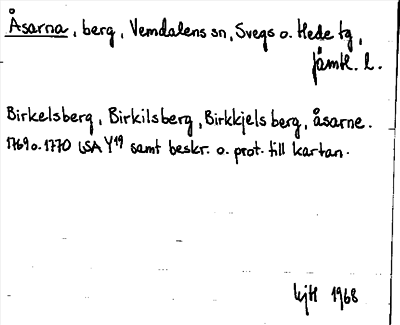 Åsarna, berg, Vemdalens sn, Svegs o. Hede tg,
Jämtl. l.
Birkelsberg, Birkilsberg, Birkkjelsberg, åsarne.
1769 o. 1770 LSA Y19 samt beskr. o. prot. till kartan.
1968